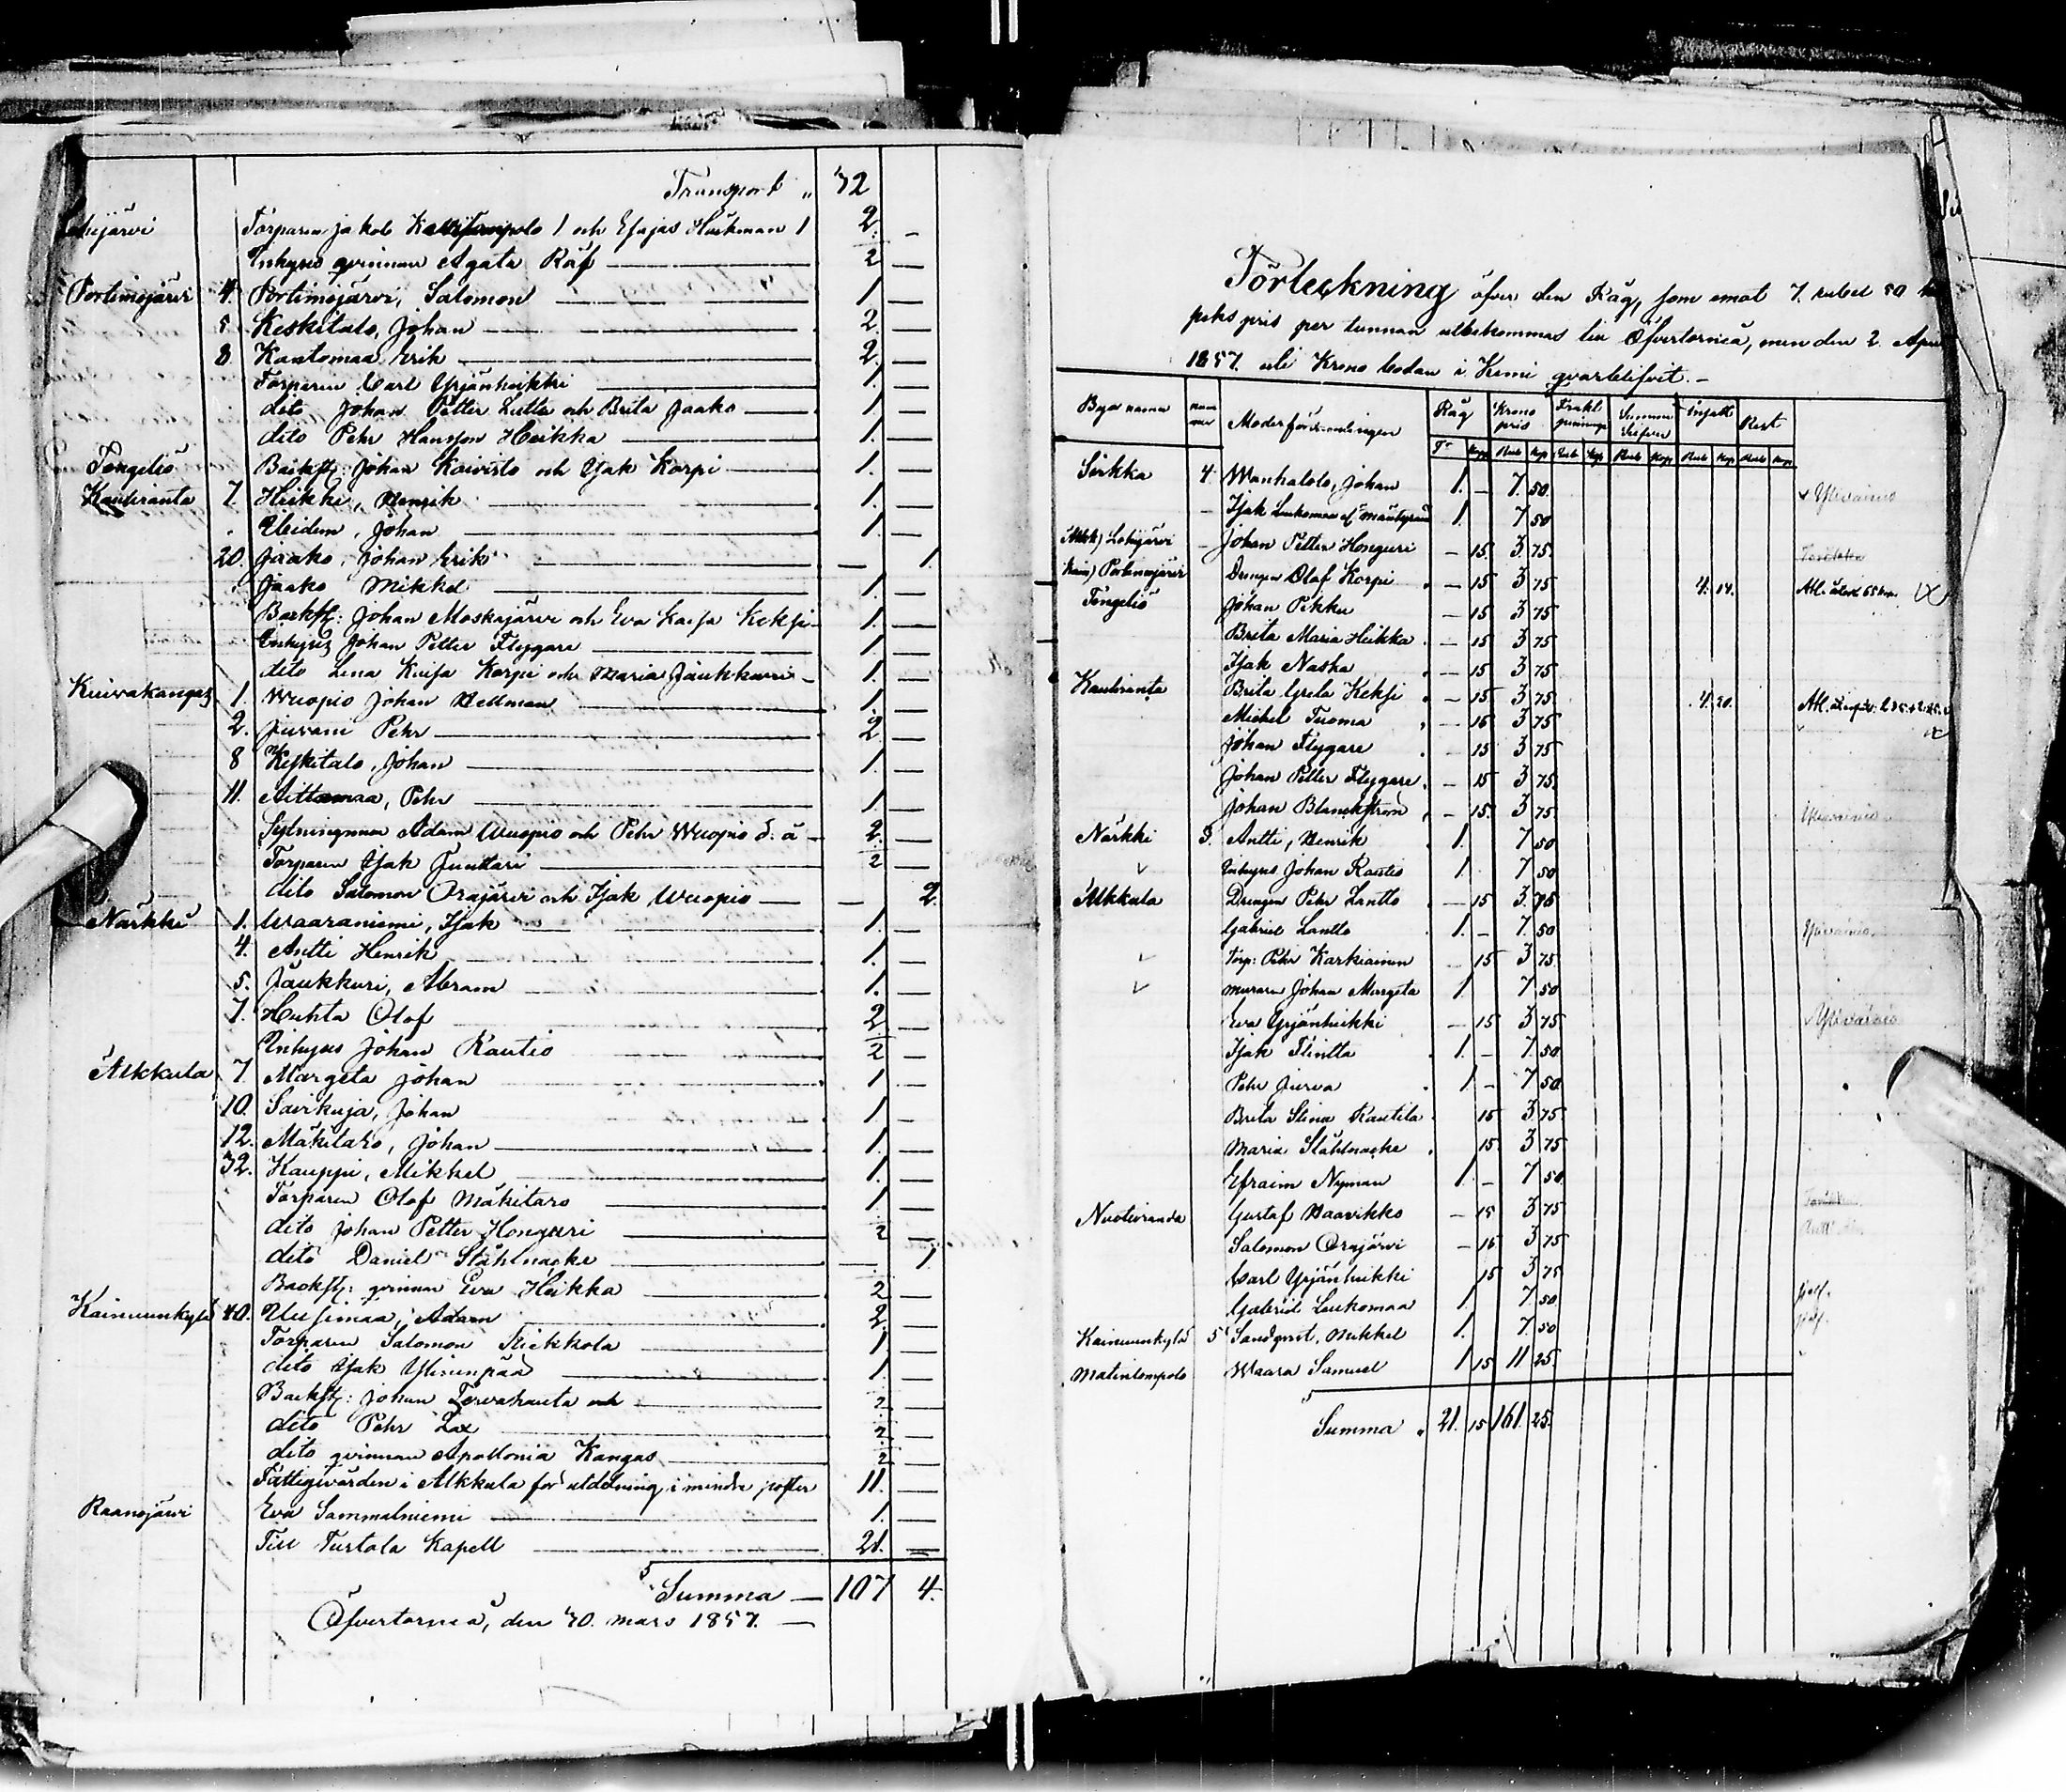 Transport " 32
Torparen Jakob 1 och Esajas Huikman 1 2. —
Inhyses qvinnan Agata Räf — 2 —
Portimojärvi 4. Portimojärvi, Salomon — 1. —
5. Keskitalo, Johan — 2. —
8 Kantomaa Erik — 2. —
Torparen Carl Yrjänheikki — 1. —
dito Johan Petter Lutto och Brita Jaako — 1. —
dito Pehr Hansson Heikka — 1. —
Tengeliö Backst: Johan Koivisto och Isak Korpi — 1. —
Kauliranta 7. Heikki, Henrik — 1. —
Johan — 1. —
20. Jaako, Johan Erik — — 1.
Jaako Mikkel — 1. —
Backst: Johan Moskajärvi och Eva Kaisa Keksi — 1. —
Inhyses Johan Petter Flyggare — 1. —
dito Lena Kaisa Korpi och Maria Jaukkuri — 1. —
Kuivakangas 1. Wuopio Johan Hellman — 1. —
2. Juvani Pehr — 2. —
8 Keskitalo, Johan — 1. —
11. Aittamaa, Pehr — 1. —
Sytningsman Adam Wuopio och Pehr Wuopio d. ä — 2. —
Torparen Isak Junttari — 2 —
dito Salomon Orajärvi och Isak Wuopio — — 2.
Närkki 1. Waaraniemi, Isak — 1. —
4. Antti Henrik — 1. —
5. Jaukkuri, Abram — 1. —
7. Huhta Olof — 2 —
Inhyses Johan Rautio — 2 —
Alkkula 7. Margeta Johan — 1 —
10. Savikuja, Johan — 1 —
12. Mäkitaro, Johan — 1. —
32. Kauppi, Mikkel — 1. —
Torparen Olof Mäkitaro — 1 —
dito Johan Petter Honguri — 2 —
dito Daniel Ståhlnacke — — 1
Backst: qvinnan Eva Heikka — 2 —
Kainuunkylä 40. Uusimaa, Adam — 2. —
Torparen Salomon Niekkola — 1 —
dito Isak Ylinenpää — 1. —
Backst: Johan Tervahauta och — 2 —
dito Pehr Lax — 2 —
dito qvinnan Apollonia Kangas — 2 —
Fattigvården i Alkkula för utdelning i mindre poster 11. —
Raanojärvi Eva Sammalniemi — 1. —
Till Turtola Kapell — 21. —
Summa — 107 4.
Öfvertorneå, den 30. mars 1857. —
Förteckning öfver den Råg, som emot 7. rubel 50 ko
peks pris per tunnan utbekommas till Öfvertorneå, men den 2. April
1857. uti Krono bodan i Kemi qvarblifvit. —
Byar namn Råg Krono pris Frakt penningar Summa Silfver Rest
T:r Kopp Rub Kop Rub Kop Rub Kop Rub Kop Rub Kop
Sirkka 4. Wanhatalo, Johan 1. — 7. 50. v Ylivainio
Isak Leukomaa 1. 7 50
Alkk) Lohijärvi Johan Petter Honguri — 15. 3. 75.
Portimojärvi Drengen Olof Korpi — 15 3 75 4. 14.
Tengeliö Johan Pekka — 15 3 75
Brita Maria Heikka — 15 3 75
Isak Naska — 15 3 75
Kauliranta Brita Greta Keksi — 15. 3. 75. 4. 20.
Michel Tuoma — 15 3 75
Johan Flygare — 15 3 75
Johan Petter Flygare — 15 3 75.
Johan Blanckström — 15. 3 75. Ylivainio
Närkki 3. Antti, Henrik 1. 7 50
v Inhyses Johan Rautio 1 7 50
Alkkula Drengen Pehr Lantto — 15 3. 75
Gabriel Lantto 1. — 7. 50 Ylivainio.
v Torp: Pehr Karkiainen — 15 3 75.
v muraren Johan Margeta 1 7 50
Eva Yrjänheikki — 15 3 75 v Ylivainio
Isak Flintta 1. — 7. 50.
Pehr Jurva 1 — 7 50
Brita Stina Rautila 15 3 75
Maria Ståhlnacke 15 3 75
Efraim Nyman 1. — 7 50.
Nuotioranda Gustaf Haavikko — 15 3 75
Salomon Orajärvi — 15 3 75
Carl Yrjänheikki 15 3 75
Gabriel Leukomaa 1. 7. 50 sjelf.
Kainuunkylä 5 Sandqvist, Mikkel 1. 7. 50 sjelf.
Matinlompolo Waara Samuel 1 15 11 25.
Summa . 21. 15 161. 25.